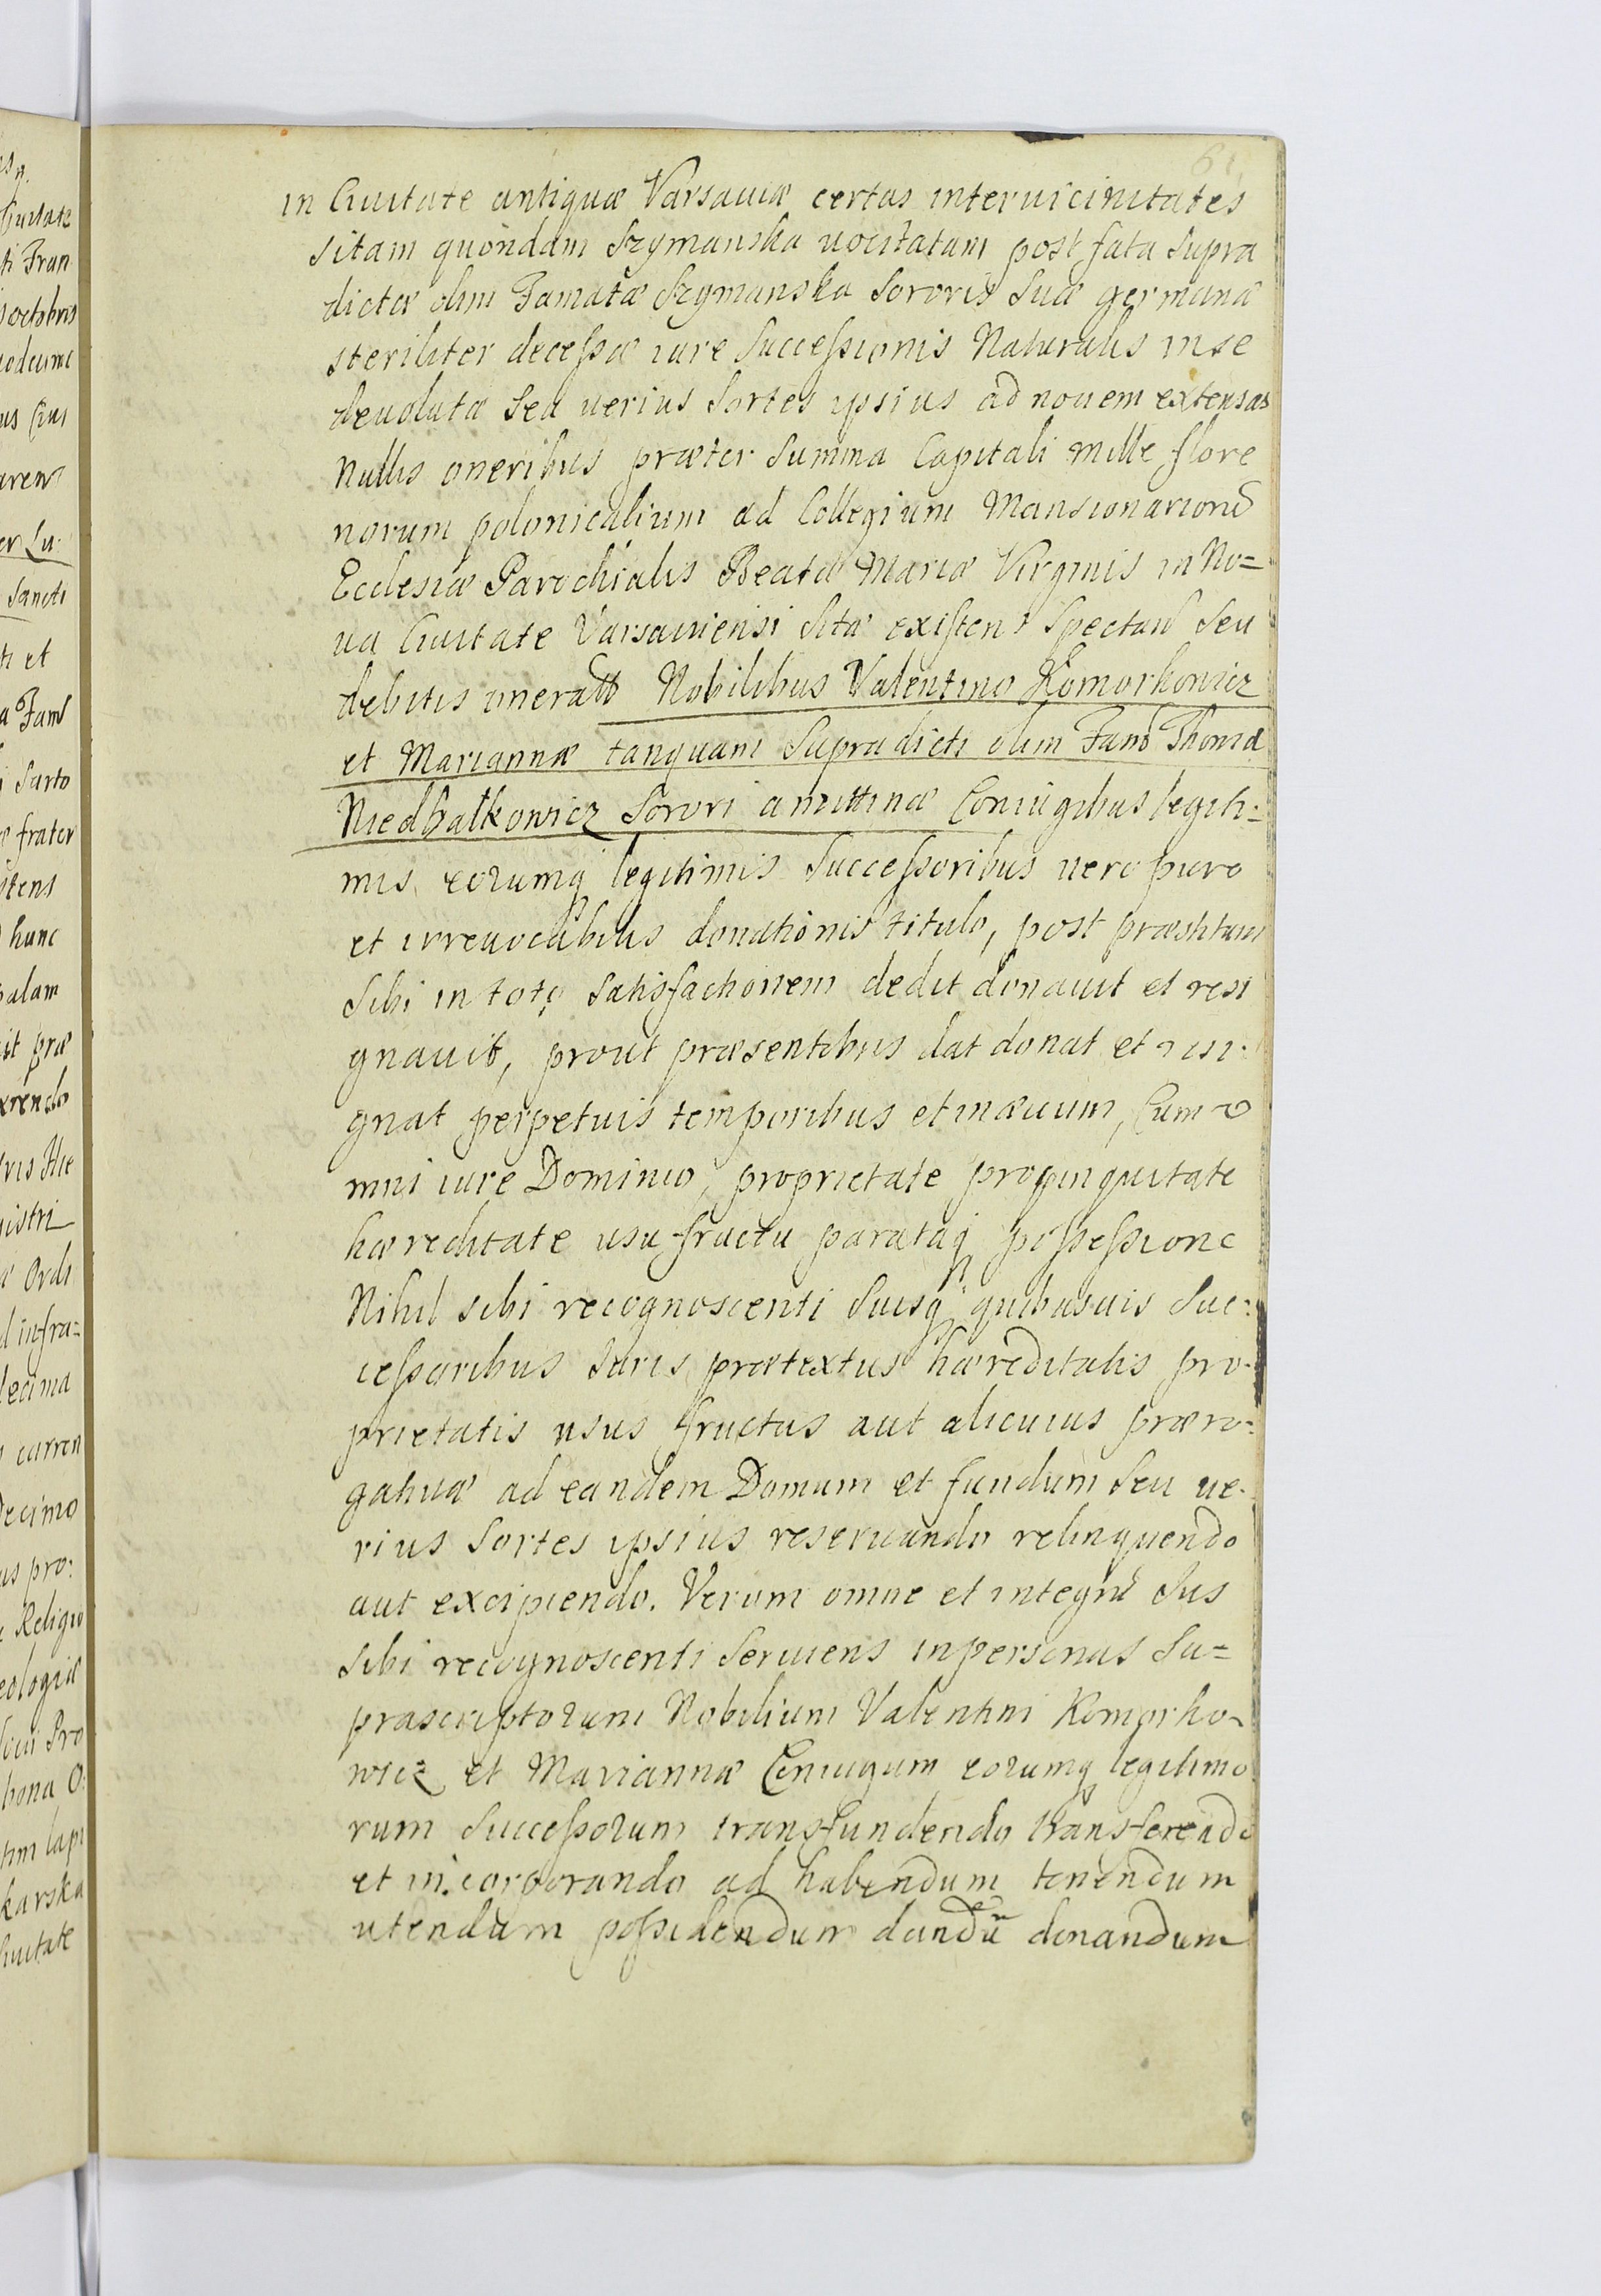 61
in Ciuitate antiquæ Varsauiæ certas interuicinitates
sitam quondam Szymanska uocitatam post fata supra
dictæ olim Famatæ Szymanska Sororis suæ germanæ
steriliter decessæ iure Successionis Naturalis in se
deuolutæ Sed uerius Sortes ipsius ad nouem extensas
Nullis oneribus præter Summa Capitali mille flore
norum polonicalium ad Collegium Mansionarioru
Ecclesiæ Parochialis Beatæ Mariæ Virginis in No=
ua Ciuitate Varsauiensi Sitæ existen Spectan Seu
debitis onerat Nobilibus Valentino Komorkowicz
et Mariannæ tanquam Supradicti olim Fam Thomæ
Niedbałkowicz Sorori amittinæ Coniugibus legiti=
mis, eorumq legitimis Successoribus uero puro
et irreuocabilis donationis titulo, post præstitam
Sibi in toto Satisfactionem dedit donauit et resi
gnauit, prout præsentibus dat donat et resi
gnat perpetuis temporibus et in æuum, Cum o
mni iure Dominio, proprietate propinquitate
hæreditate usu fructu parataq possessione
Nihil sibi recognoscenti Suisq quibusuis Suc=
cessoribus Iuris prætextus hæreditatis pro-
prietatis usus fructus aut alicuius præro=
gatiuæ ad eandem Domum et fundum Seu ue-
rius Sortes ipsius reseruando relinquendo
aut excipiendo. Verum omne et integru Ius
Sibi recognoscenti Seruiens in personas Su=
prascriptorum Nobilium Valentini Komorko-
wicz et Mariannæ Coniugum eorumq legitimo
rum Successorum transfundendo transferendo
et incorporando ad habendum tenendum
utendum possidendum dandu donandum